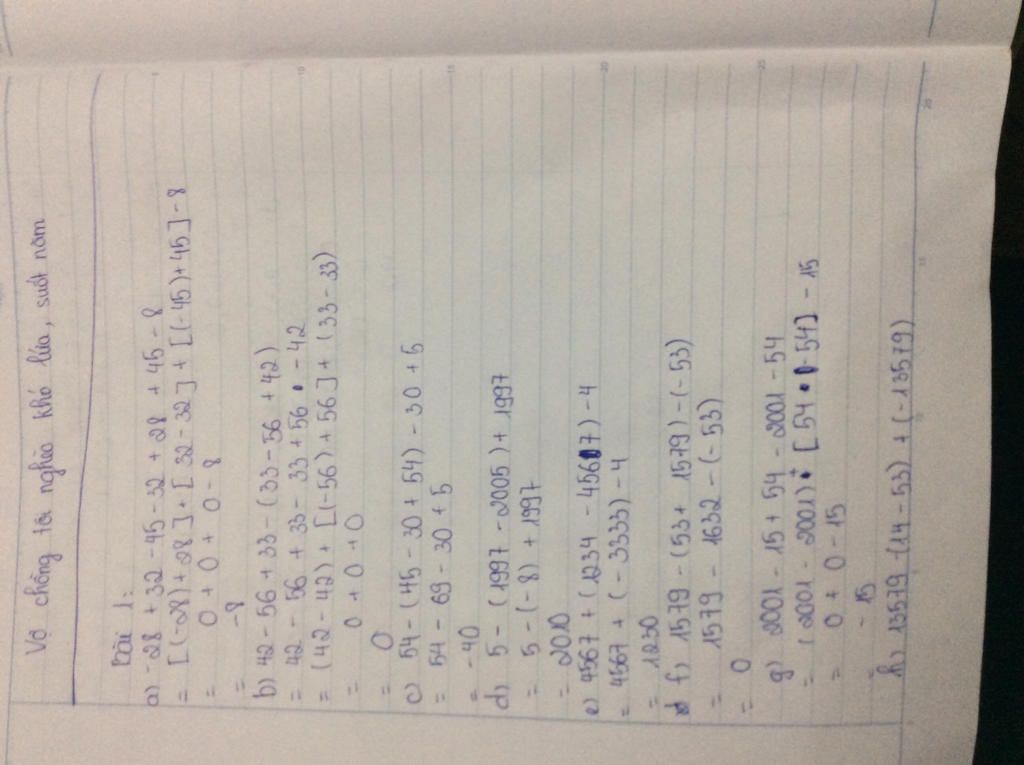 Vợ chồng tôi nghèo khó lúa, suốt năm
Bài 1:
a) -28 + 32 - 45 - 32 + 28 + 45 - 8
= [(-28) + 28] + [32 - 32] + [(-45) + 45] - 8
= 0 + 0 + 0 - 8
= -8
b) 42 - 56 + 33 - (33 - 56 + 42)
= 42 - 56 + 33 - 33 + 56 - 42
= (42 - 42) + [(-56) + 56] + (33 - 33)
= 0 + 0 + 0
= 0
c) 54 - (45 - 30 + 54) - 30 + 5
= 54 - 69 - 30 + 5
= -40
d) 5 - (1997 - 2005) + 1997
= 5 - (-8) + 1997
= 2010
e) 4567 + (1234 - 4567) - 4
= 4567 + (-3333) - 4
= 1230
f) 1579 - (53 + 1579) - (-53)
= 1579 - 1632 - (-53)
= 0
g) 2001 - 15 + 54 - 2001 - 54
= (2001 - 2001) + [54 - 54] - 15
= 0 + 0 - 15
= - 15
h) 13579 - (14 - 53) + (-13579)